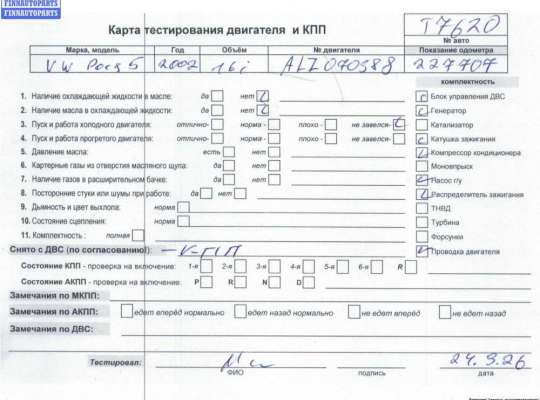 FINNAUTOPARTS
FINNAUTOPARTS
Карта тестирования двигателя и КПП
T7620
№ авто
Марка, модель Год Объём № двигателя Показание одометра
VW 2002 1.6i ALZ070388 227707
комплектность
1. Наличие охлаждающей жидкости в масле: да нет Блок управления ДВС
2. Наличие масла в охлаждающей жидкости: да нет Генератор
3. Пуск и работа холодного двигателя: отлично- норма - плохо - не завелся- Катализатор
4. Пуск и работа прогретого двигателя: отлично- норма - плохо - не завелся- Катушка зажигания
5. Давление масла: есть нет Компрессор кондиционера
6. Картерные газы из отверстия масляного щупа: да нет Моновпрыск
7. Наличие газов в расширительном бачке: да нет Насос г/у
8. Посторонние стуки или шумы при работе: да нет Распределитель зажигания
9. Дымность и цвет выхлопа: норма ТНВД
10. Состояние сцепления: норма Турбина
11. Комплектность : полная Форсунки
Снято с ДВС (по согласованию!): Проводка двигателя
Состояние КПП - проверка на включение: 1-я 2-я 3-я 4-я 5-я 6-я R
Состояние АКПП - проверка на включение: P R N D
Замечания по МКПП:
Замечания по АКПП: едет вперёд нормально едет назад нормально не едет вперёд не едет назад
Замечания по ДВС:
Тестировал: 24.3.26
ФИО подпись дата